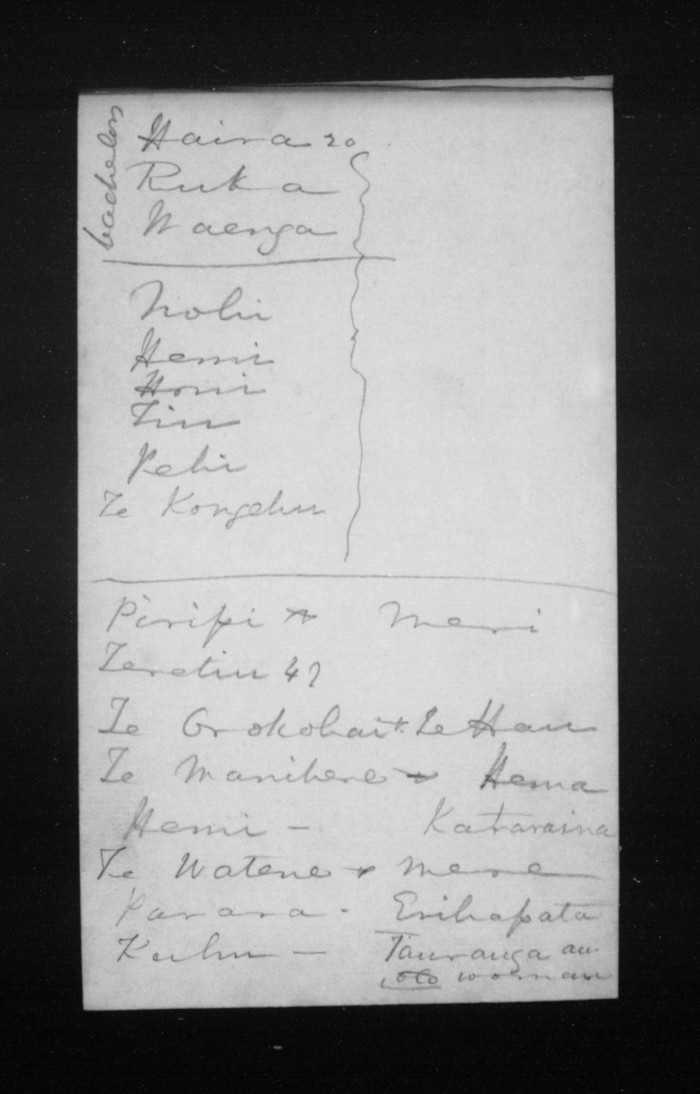 bachelors
Haira 20
Ruka
Waenga
Nohi
Hemi
Honi
Tiu
Pehi
Te Kongehu
Piripi + Meri
47
Te Orokohai + Te Hau
Te Manihere + Hema
Hemi - Kataraina
Te Watene + Mere
Parara - Erihapata
Kuhu - Tauranga an
old woman